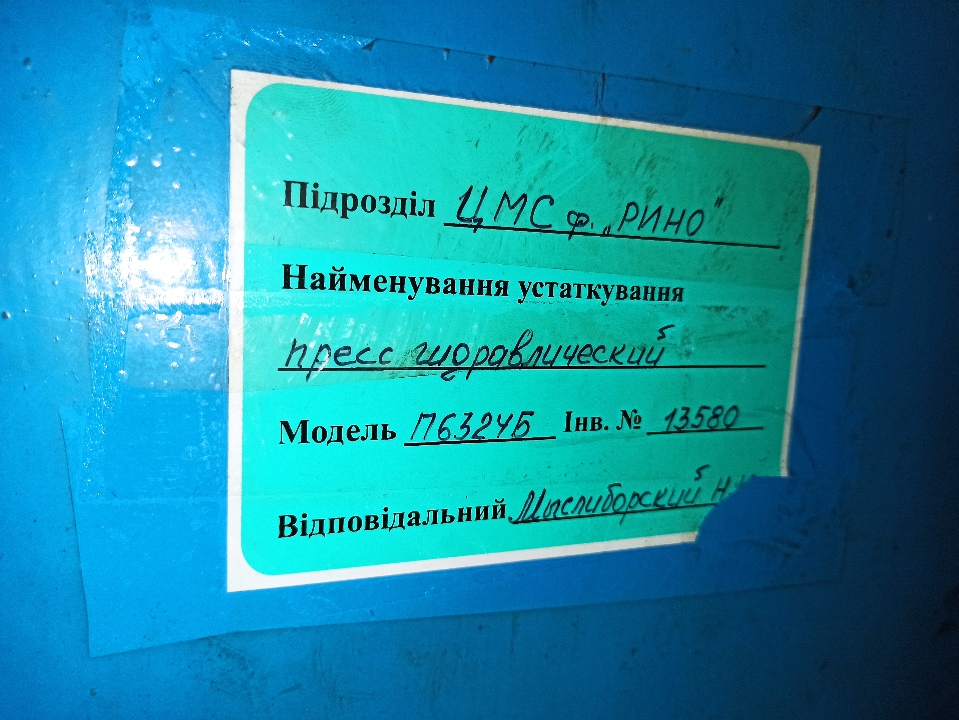 Підрозділ ЦМС ф. „РИНО"
Найменування устаткування
пресс гидравлический
Модель П6324Б Інв. № 13580
Відповідальний Мыслиборский Н.